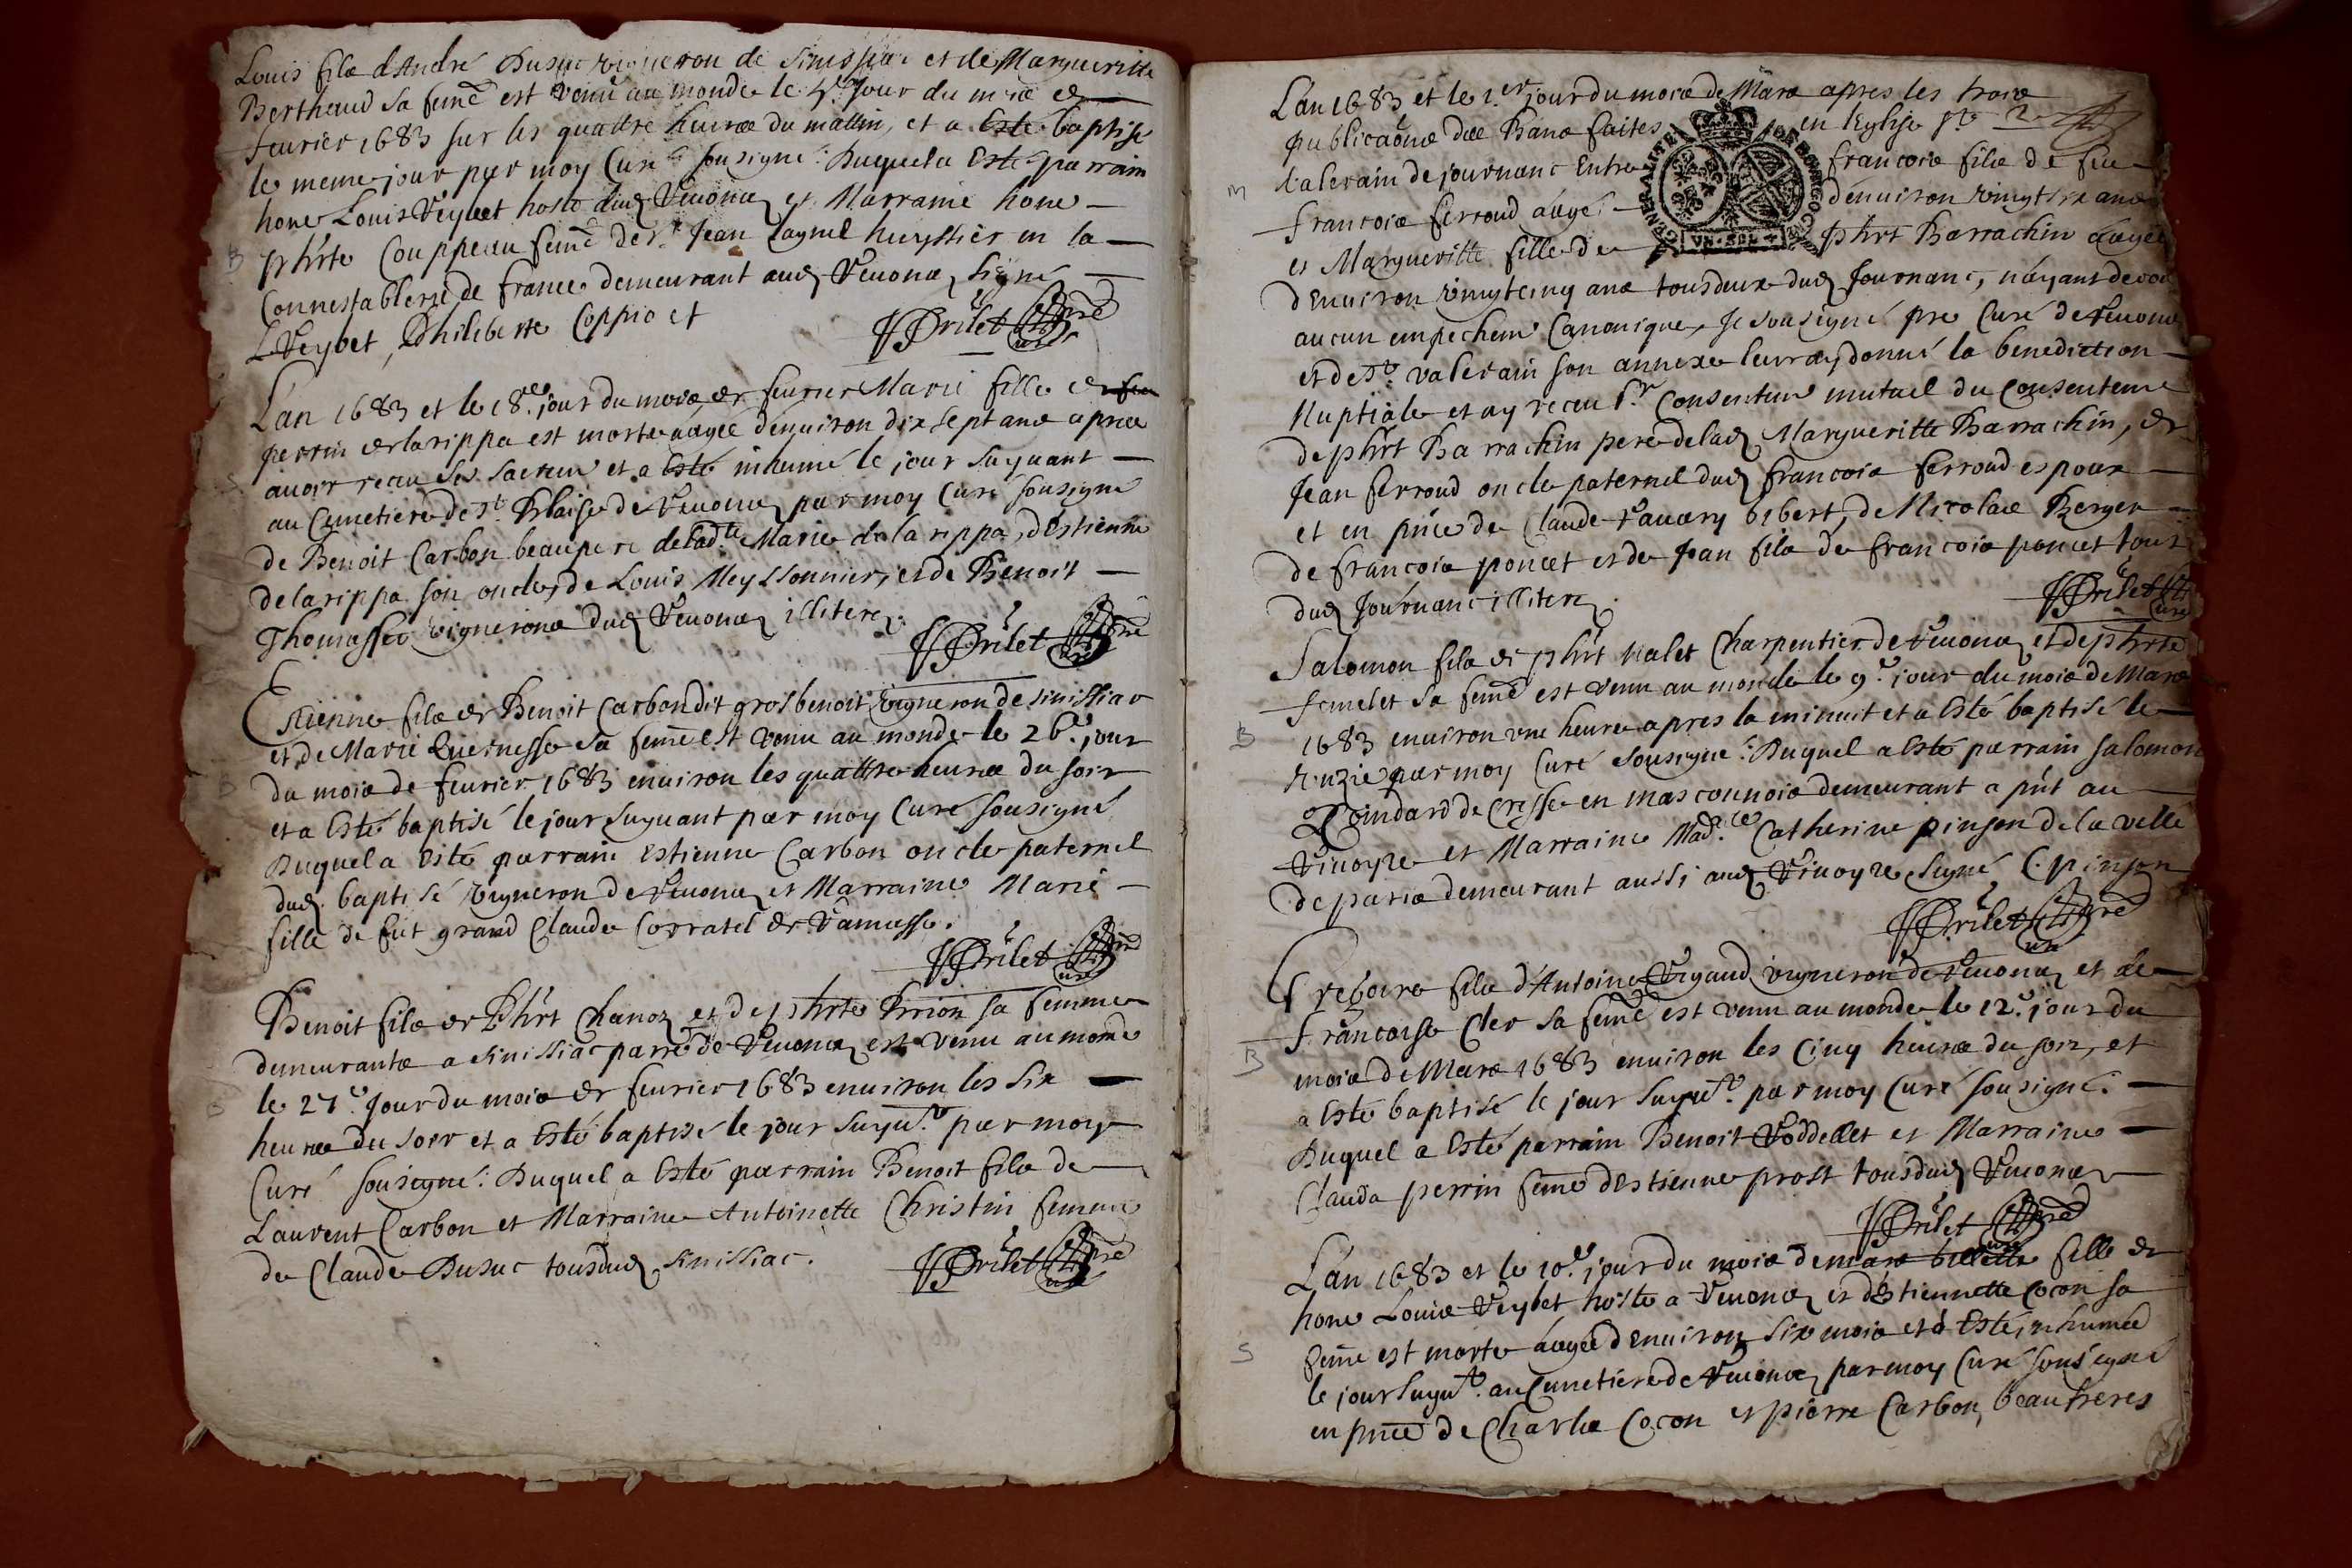 Louis fils d'André Dusuc vigneron de Sinissiac et de Margueritte
Berthaud sa feme est venu au monde le 5e. Jour du mois de
feurier 1683 sur les quattre heures du mattin, et a Esté baptisé
le meme jour par moy Curé sousigné: Duquel a Esté parrain
hone Louis Veybet hoste dud Veuonas et Marraine hone
phrte Couppeau feme de sr. Jean Cagnel huyssier en la
Connestablerie de france demeurant aud Veuonas, signé
LVeybet, Philiberte Coppio et
JBrilet pre Curé
L'an 1683 et le 18e. jour du mois de feurier Marie fille de feu
perrin de larippa est morte aagée d'enuiron dix sept ans apres
auoir receu ses sacrem et a Esté inhumé le jour suyuant
au Cimetiere de St. Blaise de Veuonas par moy Curé sousigné
de Benoit Carbon beaupere de ladte. Marie de la rippa, d'Estienne
delarippa son oncle, de Louis Meyssonnier, et de Benoit
Thomasset vignerons dud Veuonas illiterez.
JBrilet pre Curé
Estienne fils de Benoit Carbon dit gros benoit vigneron de sinissiac
et de Marie Quernesse sa feme est venu au monde le 26e. jour
du mois de feurier 1683 enuiron les quattre heures du soir
et a Esté baptisé le jour suyuant par moy Curé sousigné
Duquel a Esté parrain Estienne Carbon oncle paternel
dud. baptisé vigneron de Veuonas et Marraine Marie
fille de fut grand Claude Corratel de Vamasse.
JBrilet pre Curé
Benoit fils de Phrt Chanoz et de phrte Brion sa femme
demeurants a sinissiac parre de Veuonas est venu au monde
le 27e. Jour du mois de feurier 1683 enuiron les six
heures du soir et a Esté baptisé le jour suyut. par moy
Curé sousigné: Duquel a Esté parrain Benoit fils de
Laurent Carbon et Marraine Antoinette Christin femme
de Claude Dusuc tousdud Sinissiac.
JBrilet pre Curé
L'an 1683 et le 1.er jour du mois de Mars apres les trois
publicaõns des Bans faites en l'Eglise St.
Valerain de journanc Entre francois fils de feu
francois ferroud aagé d'enuiron vingt six ans
GENERALITE DE BOURGOGNE
VN SOL
et Margueritte fille de phrt Barrachin aagée
d'Enuiron vingtcinq ans tousdeux dud Journanc, n'ayant de
aucun empechem Canonique, Je sousigné pre Curé de Veuonas
et de St. Valerain son annexe leur ay donné la benediction
Nuptiale et ay receu lr. Consentem mutuel du Consenteme
de phrt Barrachin pere de lad Margueritte Barrachin, de
Jean ferroud oncle paternel dud francois ferroud espoux
et en pnce de Claude Bibert, de Nicolas Berger
de francois poncet et de Jean fils de francois poncet tous
dud Journanc illiterez.
JBrilet Curé
Salomon fils de phrt Nalet Charpentier de Veuonas et de phrte
femelet sa feme est venu au monde le 9e. jour du mois de Mars
1683 enuiron vne heure apres la minuit et a Esté baptisé le
par moy Curé sousigné: Duquel a Esté parrain Salomon
de Cresse en masconnois demeurant a pñt au
Viuoyre et Marraine Mad.lle Catherine pinson de la ville
de paris demeurant aussi aud Viuoyre signé C. pinson
JBrilet pre Curé
Gregoire fils d'Antoine Vigaud vigneron de Veuonas et de
francoise Cler sa feme est venu au monde le 12e. jour du
mois de Mars 1683 enuiron les Cinq heures du soir, et
a Esté baptisé le jour suyut. par moy Curé sousigné.
Duquel a Esté parrain Benoit Voddellet et Marraine
Clauda perrin feme d'Estienne prost tousdud Veuonas
JBrilet pre Curé
L'an 1683 et le 10e. jour du mois de mars fille de
hone Louis Veybet hoste a Veuonas et d'Estiennette Cocon sa
feme est morte aagée d'enuiron six mois et a Esté inhumée
le jour suyut. au Cimetiere de Veuonas par moy Curé sousigné
en pnce de Charles Cocon et pierre Carbon, beaufreres
B
S
B
B
M
B
B
S